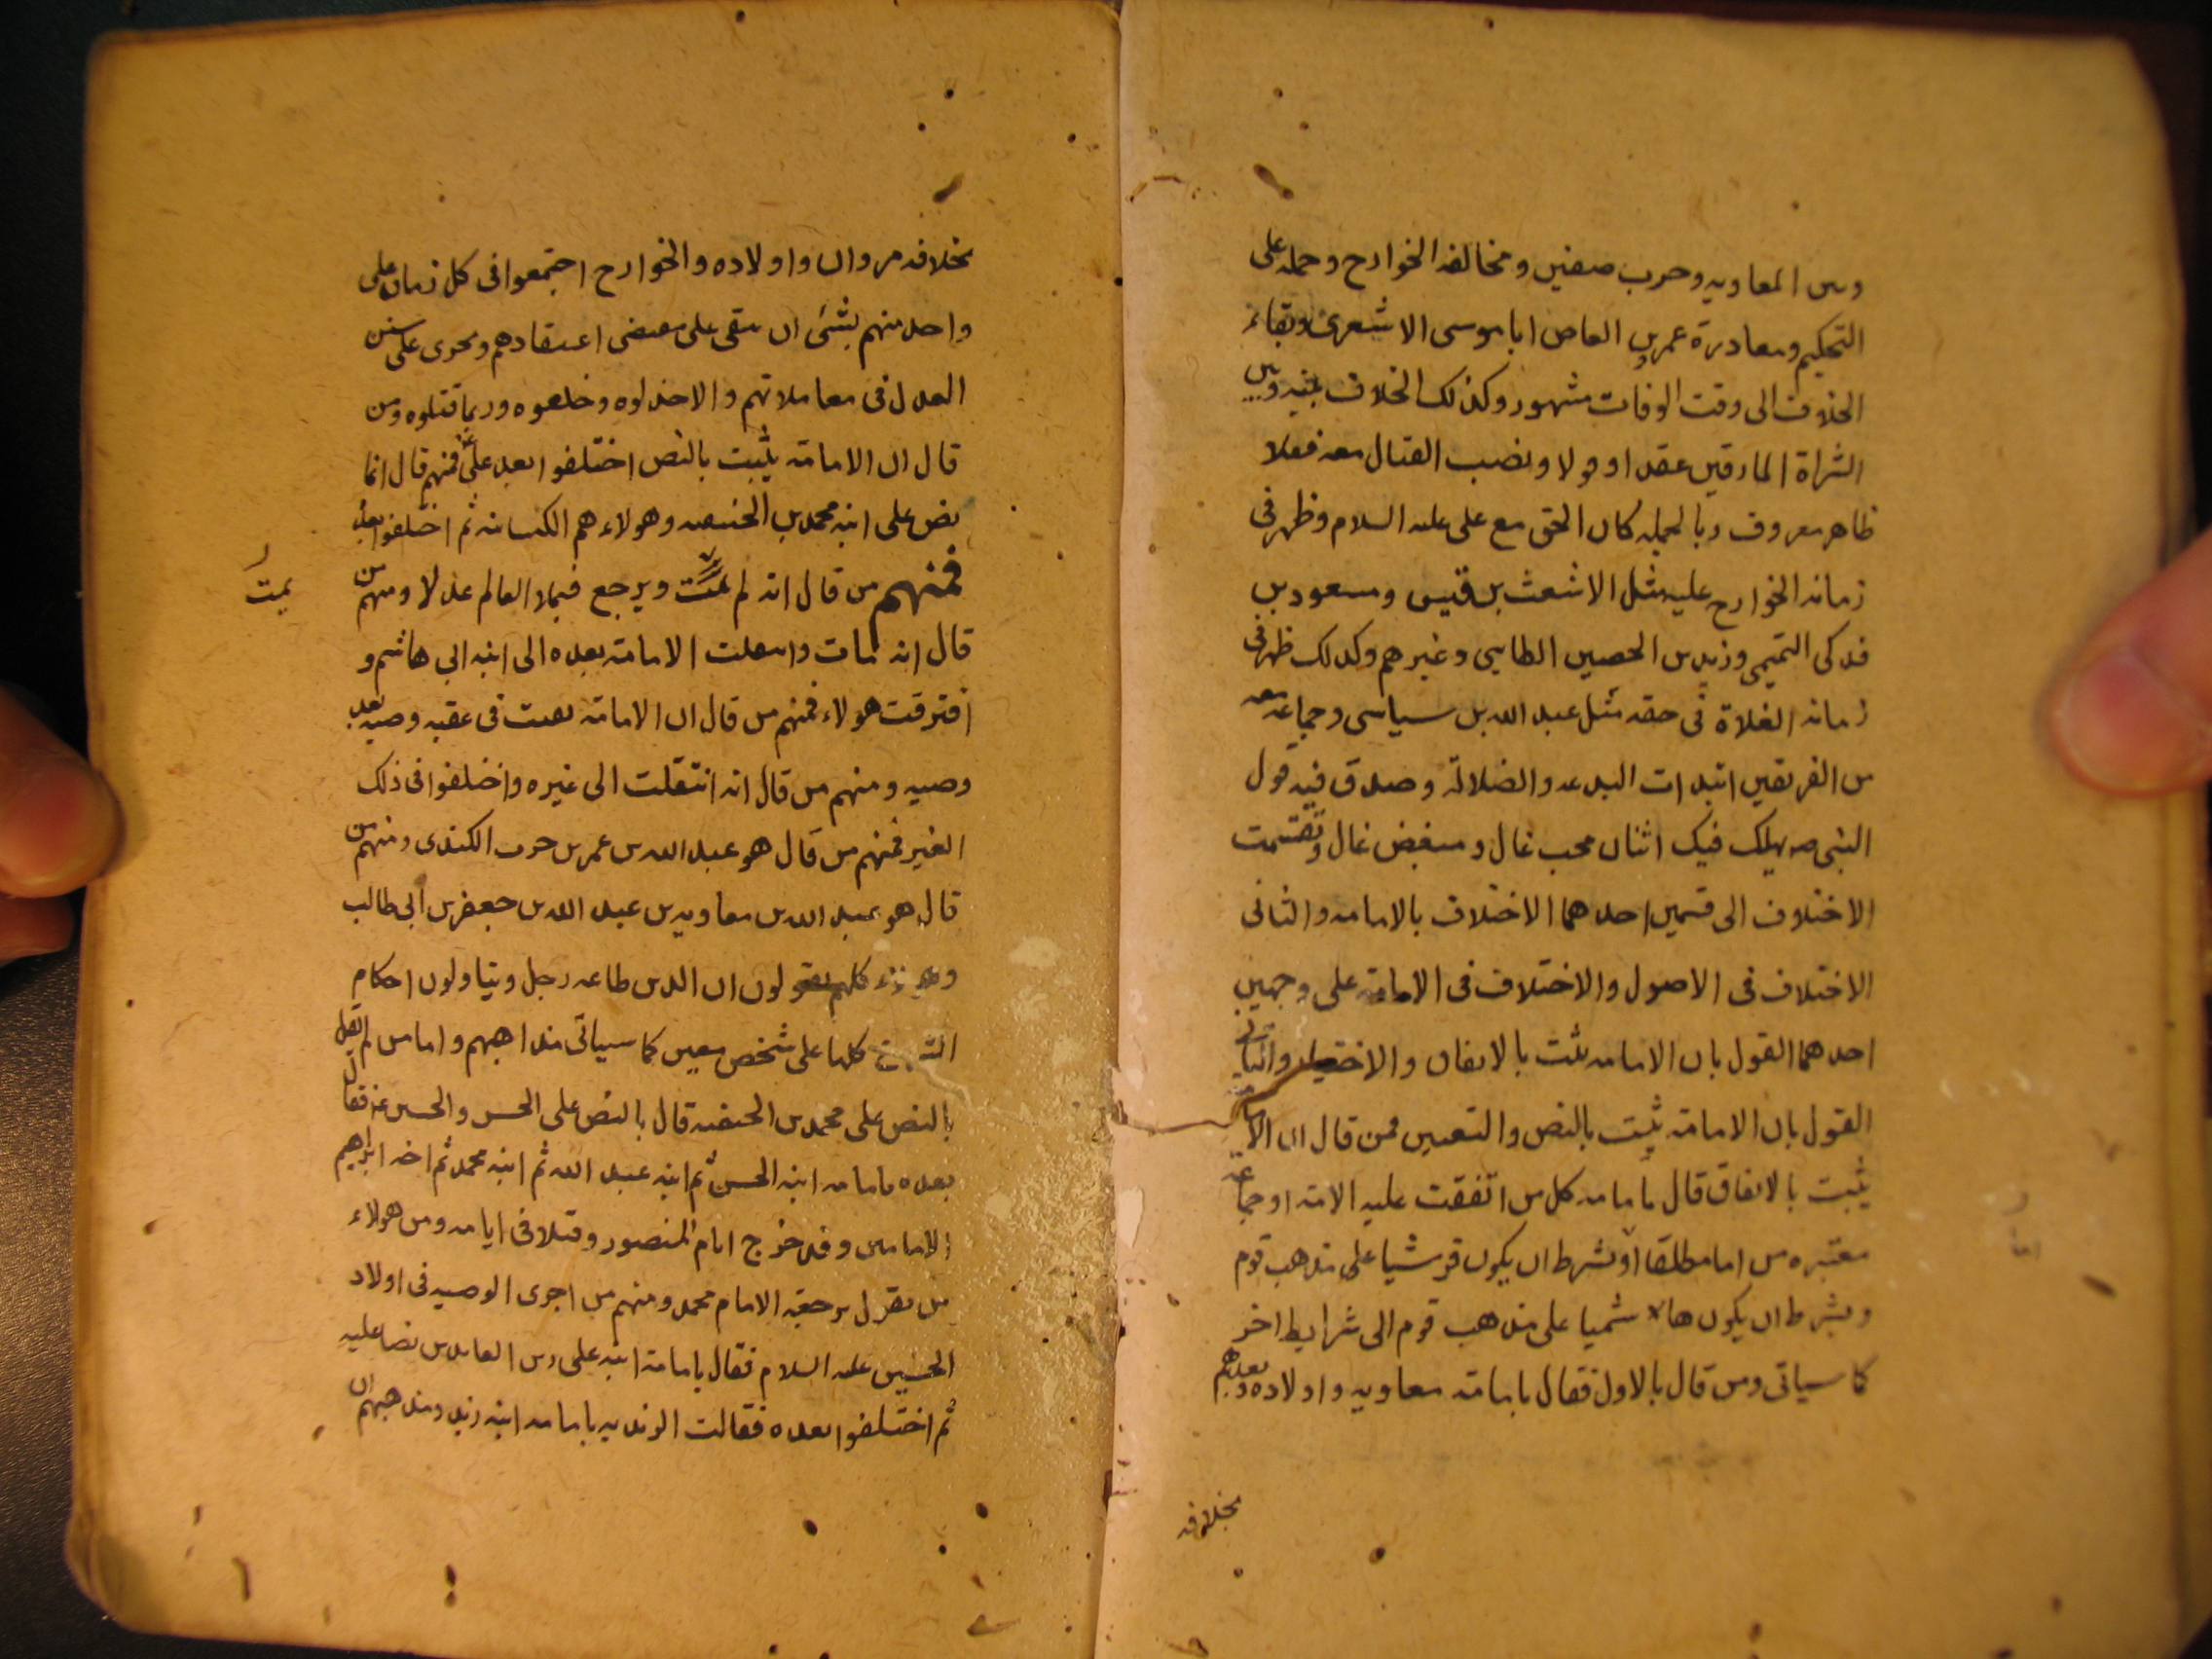 وبين المعاويه وحرب صفين ومخالفه الخوارج وحمله على
التحكيم ومغادرة عمرو بن العاص ابا موسى الاشعرى وبقاء
الخلاف الى وقت الوفات مشهور وكذلك الخلاف بينه وبين
الشراة المارقين عقدا وقولا ونصب القتال معه فعلا
ظاهر معروف وبالجمله كان الحق مع على عليه السلام وظهر فى
زمانه الخوارج عليه مثل الاشعث بن قيس ومسعود بن
فدكى التميمى وزيد بن الحصين الطايى وغيرهم وكذلك ظهر فى
زمانه الغلاة فى حقه مثل عبد الله بن سبا وجماعه معه
من الفريقين ابتدات البدعه والضلالة وصدق فيه قول
النبى صه يهلك فيك اثنان محب غال ومبغض غال وتقسمت
الاختلاف الى قسمين احدهما الاختلاف بالامامه والثانى
الاختلاف فى الاصول والاختلاف فى الامامة على وجهين
احدهما القول بان الامامه تثبت بالاتفاق والاختيار والثانى
القول بان الامامة يثبت بالنص والتعيين فمن قال ان الاما
يثبت بالاتفاق قال بامامه كل من اتفقت عليه الامة او جماعة
معتبره من اما مطلقا او بشرط ان يكون قرشيا على مذهب قوم
وبشرط ان يكون هاشميا على مذهب قوم الى شرايط اخر
كما سياتى ومن قال بالاول فقال بامامة معاويه واولاده وبعدهم
بخلافه
بخلافه مروان واولاده والخوارج اجتمعوا فى كل زمان على
واحد منهم بشئ ان يبقى على مقتضى اعتقادهم ويجرى على سنن
العدل فى معاملاتهم والا خذلوه وخلعوه وربما قتلوه ومن
قال ان الامامة يثبت بالنص اختلفوا بعد على فمنهم قال انما
نص على ابنه محمد بن الحنفيه وهولاء هم الكيسانيه ثم اختلفوا بعده
فمنهم من قال انه لم يمت ويرجع فيملا العالم عدلا ومنهم من
يمت
قال انه مات وانتقلت الامامة بعده الى ابنه ابى هاشم و
افترقت هولاء فمنهم من قال ان الامامة بقيت فى عقبه وصيه بعد
وصيه ومنهم من قال انه انتقلت الى غيره واختلفوا فى ذلك
الغير فمنهم من قال هو عبد الله بن عمر بن حرب الكندى ومنهم من
قال هو عبد الله بن معاويه بن عبد الله بن جعفر بن ابى طالب
وهولاء كلهم يقولون ان الدين طاعه رجل ويتاولون احكام
الشرع كلها على شخص معين كما سياتى مذاهبهم واما من لم يقل
بالنص على محمد بن الحنفيه قال بالنص على الحسن والحسين عم فقال
بعده بامامه ابنه الحسن ثم ابنه عبد الله ثم ابنه محمد ثم اخه ابراهيم
الامامين وقد خرج ايام المنصور وقتلا فى ايامه ومن هولاء
من يقول برجعة الامام محمد ومنهم من اجرى الوصيه فى اولاد
الحسين عليه السلام فقال بامامة ابنه على زين العابدين نصا عليه
ثم اختلفوا بعده فقالت الزيديه بامامه ابنه زيد ومذهبهم ان